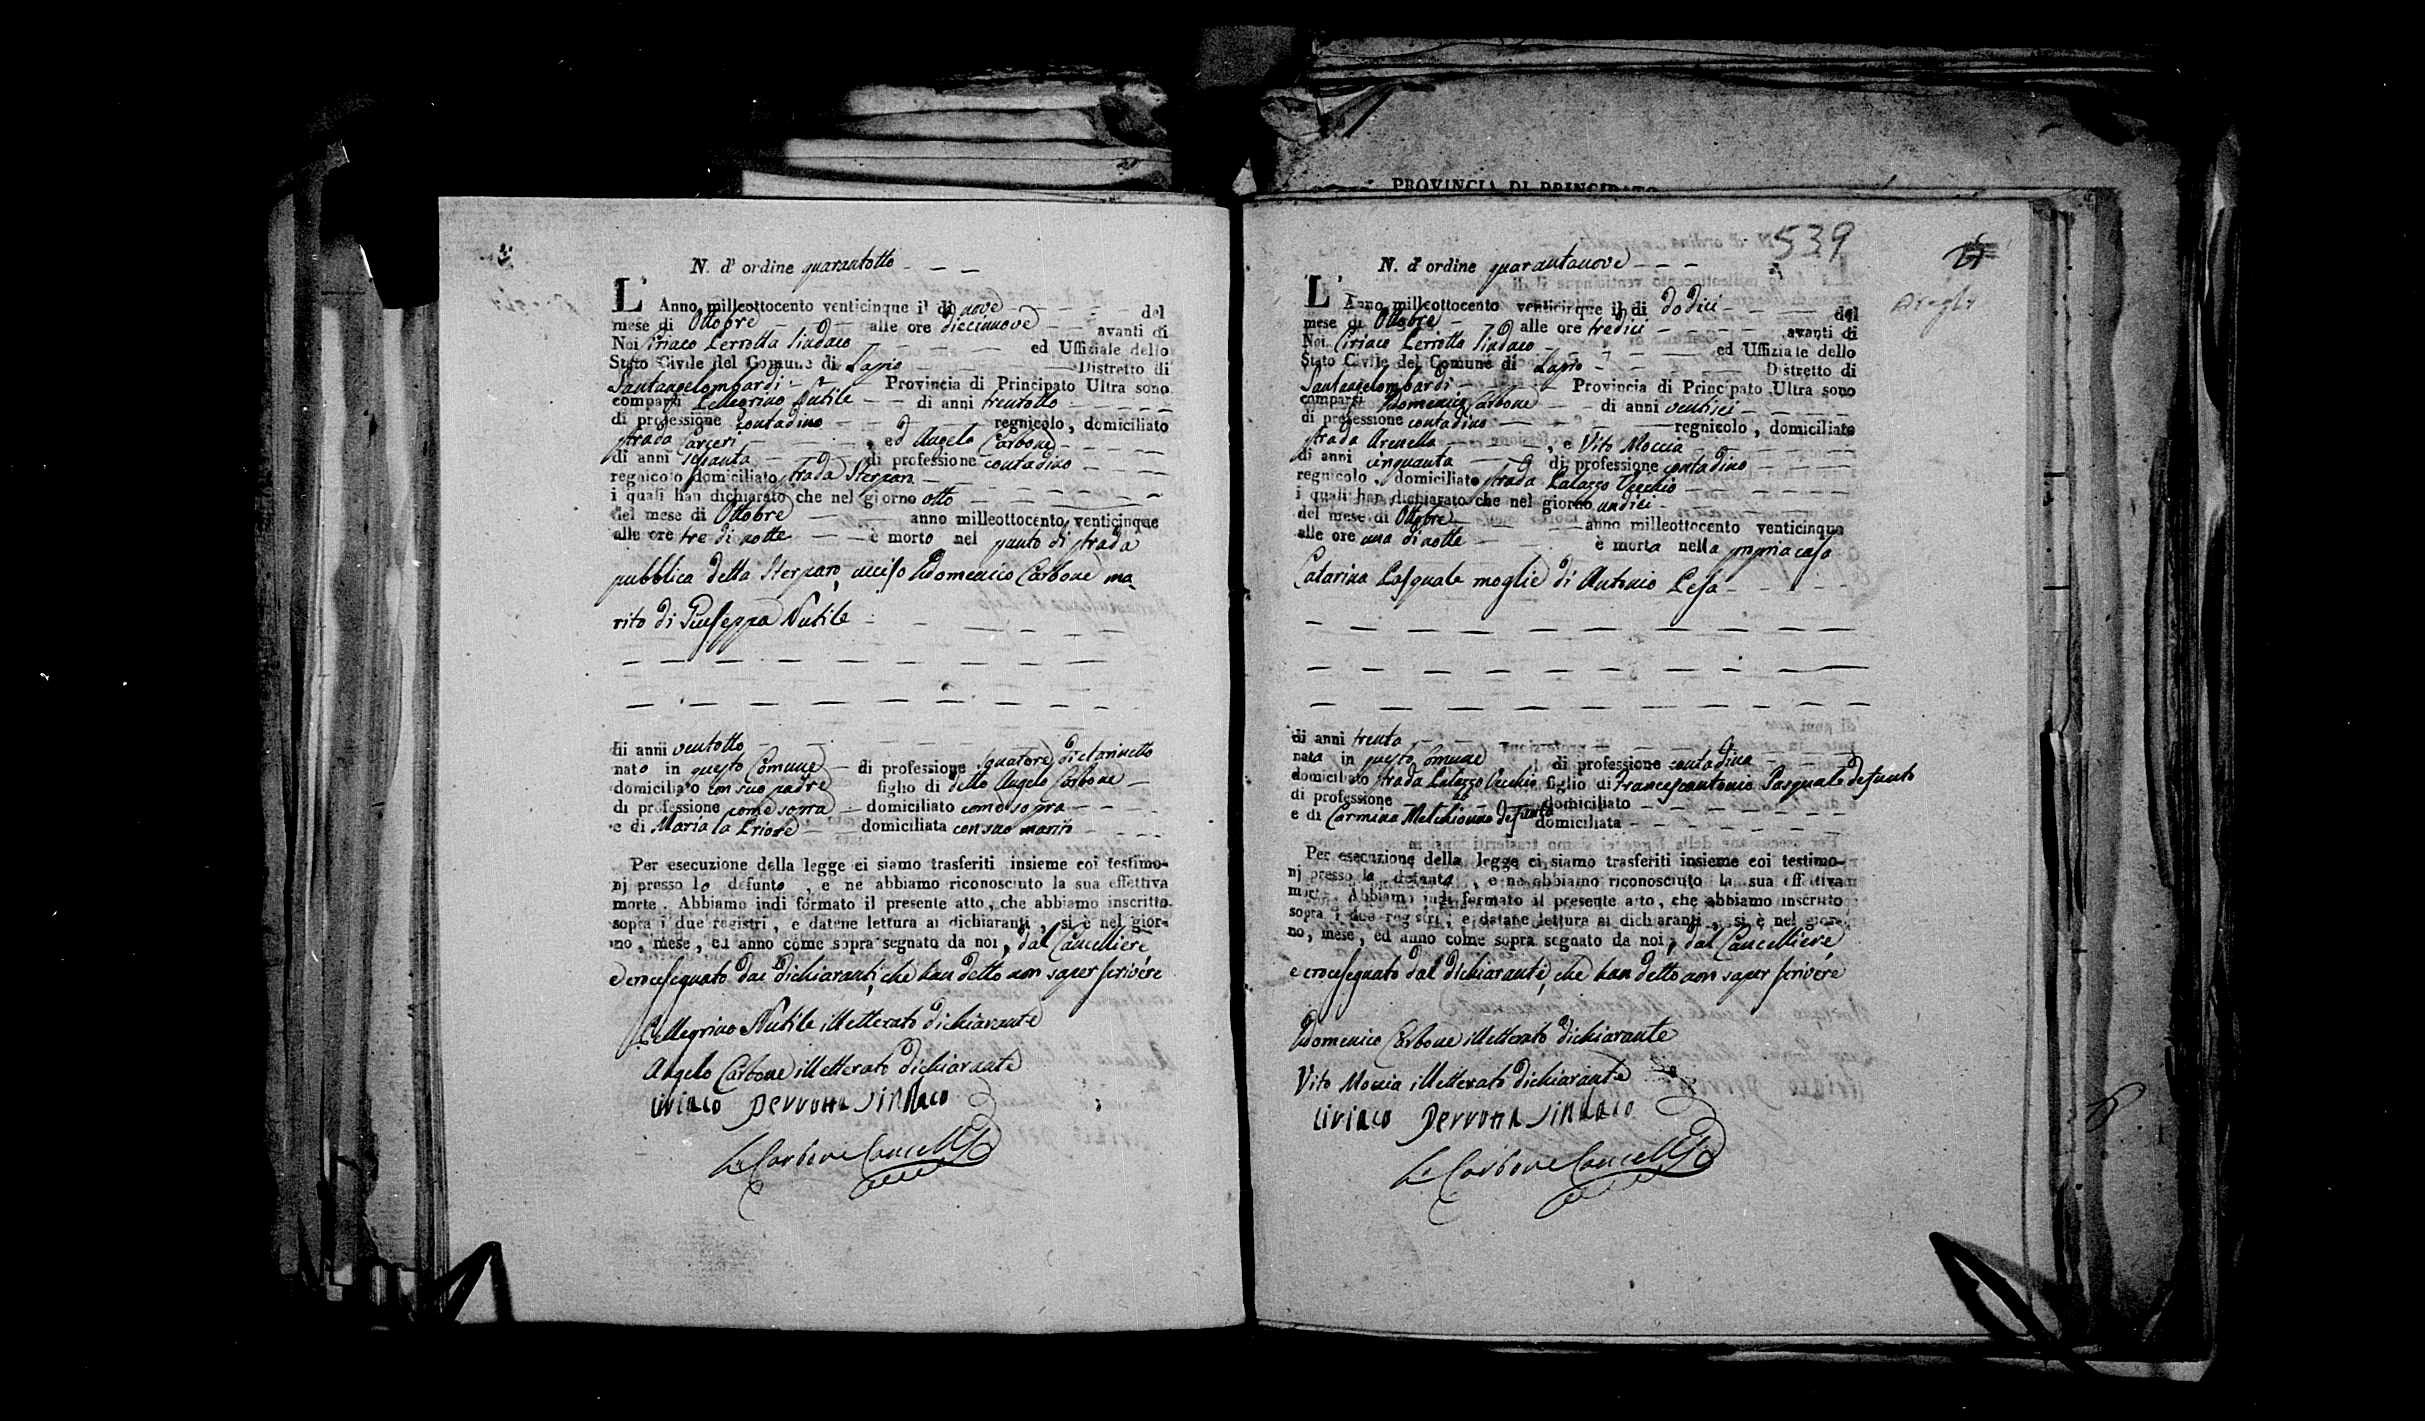 PROVINCIA DI PRINCIPATO
N. d' ordine quarantotto
L' Anno milleottocento venticinque il dì nove del
mese di Ottobre alle ore diecinnove avanti di
Noi Ciriaco Perrotta Sindaco ed Uffiziale dello
Stato Civile del Comune di Lapio Distretto di
Santangelombardi Provincia di Principato Ultra sono
comparsi Pellegrino Nutile di anni trentotto
di professione contadino regnicolo, domiciliato
strada Carceri, ed Angelo Carbone
di anni sessanta di professione contadino
regnicolo domiciliato strada Sterparo
i quali han dichiarato che nel giorno otto
del mese di Ottobre anno milleottocento venticinque
alle ore tre di notte è morto nel punto di strada
pubblica detta Sterparo, ucciso Domenico Carbone ma
rito di Giuseppa Nutile
di anni ventotto
nato in questo Comune di professione suonatore di clarinetto
domiciliato con suo padre figlio di detto Angelo Carbone
di professione come sopra domiciliato come sopra
e di Maria la Priore domiciliata con suo marito
Per esecuzione della legge ci siamo trasferiti insieme coi testimo-
nj presso lo defunto, e ne abbiamo riconosciuto la sua effettiva
morte. Abbiamo indi formato il presente atto, che abbiamo inscritto
sopra i due registri, e datene lettura ai dichiaranti, si è nel gior-
no, mese, ed anno come sopra segnato da noi, dal Cancelliere
e crocesegnato dai dichiaranti, che han detto non saper scrivere
Pellegrino Nutile illetterato dichiarante
Angelo Carbone illetterato dichiarante
Ciriaco Perrotta Sindaco
Carbone Cancell.
539
N. d' ordine quarantanove
L' Anno milleottocento venticinque il di dodici del
mese di Ottobre alle ore tredici avanti di
Noi Ciriaco Perrotta Sindaco ed Uffiziale dello
Stato Civile del Comune di Lapio Distretto di
Santangelombardi Provincia di Principato Ultra sono
comparsi Domenico Carbone di anni ventisei
di professione contadino regnicolo, domiciliato
strada Arenella, e Vito Moccia
di anni cinquanta di professione contadino
regnicolo, domiciliato strada Palazzo Vecchio
i quali han dichiarato che nel giorno undici
del mese di Ottobre anno milleottocento venticinque
alle ore una di notte è morta nella propria casa
Catarina Pasquale moglie di Antonio Pesa
di anni trenta
nata in questo Comune di professione contadina
domiciliato strada Palazzo Vecchio figlio di Francescantonio Pasquale defunto
di professione domiciliato
e di Carmina Melchionno defunta domiciliata
Per esecuzione della legge ci siamo trasferiti insieme coi testimo-
nj presso la defunta, e ne abbiamo riconosciuto la sua effettiva
morte. Abbiamo indi formato il presente atto, che abbiamo inscritto
sopra i due registri, e datane lettura ai dichiaranti, si è nel gior-
no, mese, ed anno come sopra segnato da noi, dal Cancelliere
e crocesegnato dai dichiaranti, che han detto non saper scrivere
Domenico Carbone illetterato dichiarante
Vito Moccia illetterato dichiarante
Ciriaco Perrotta Sindaco
Carbone Cancell.